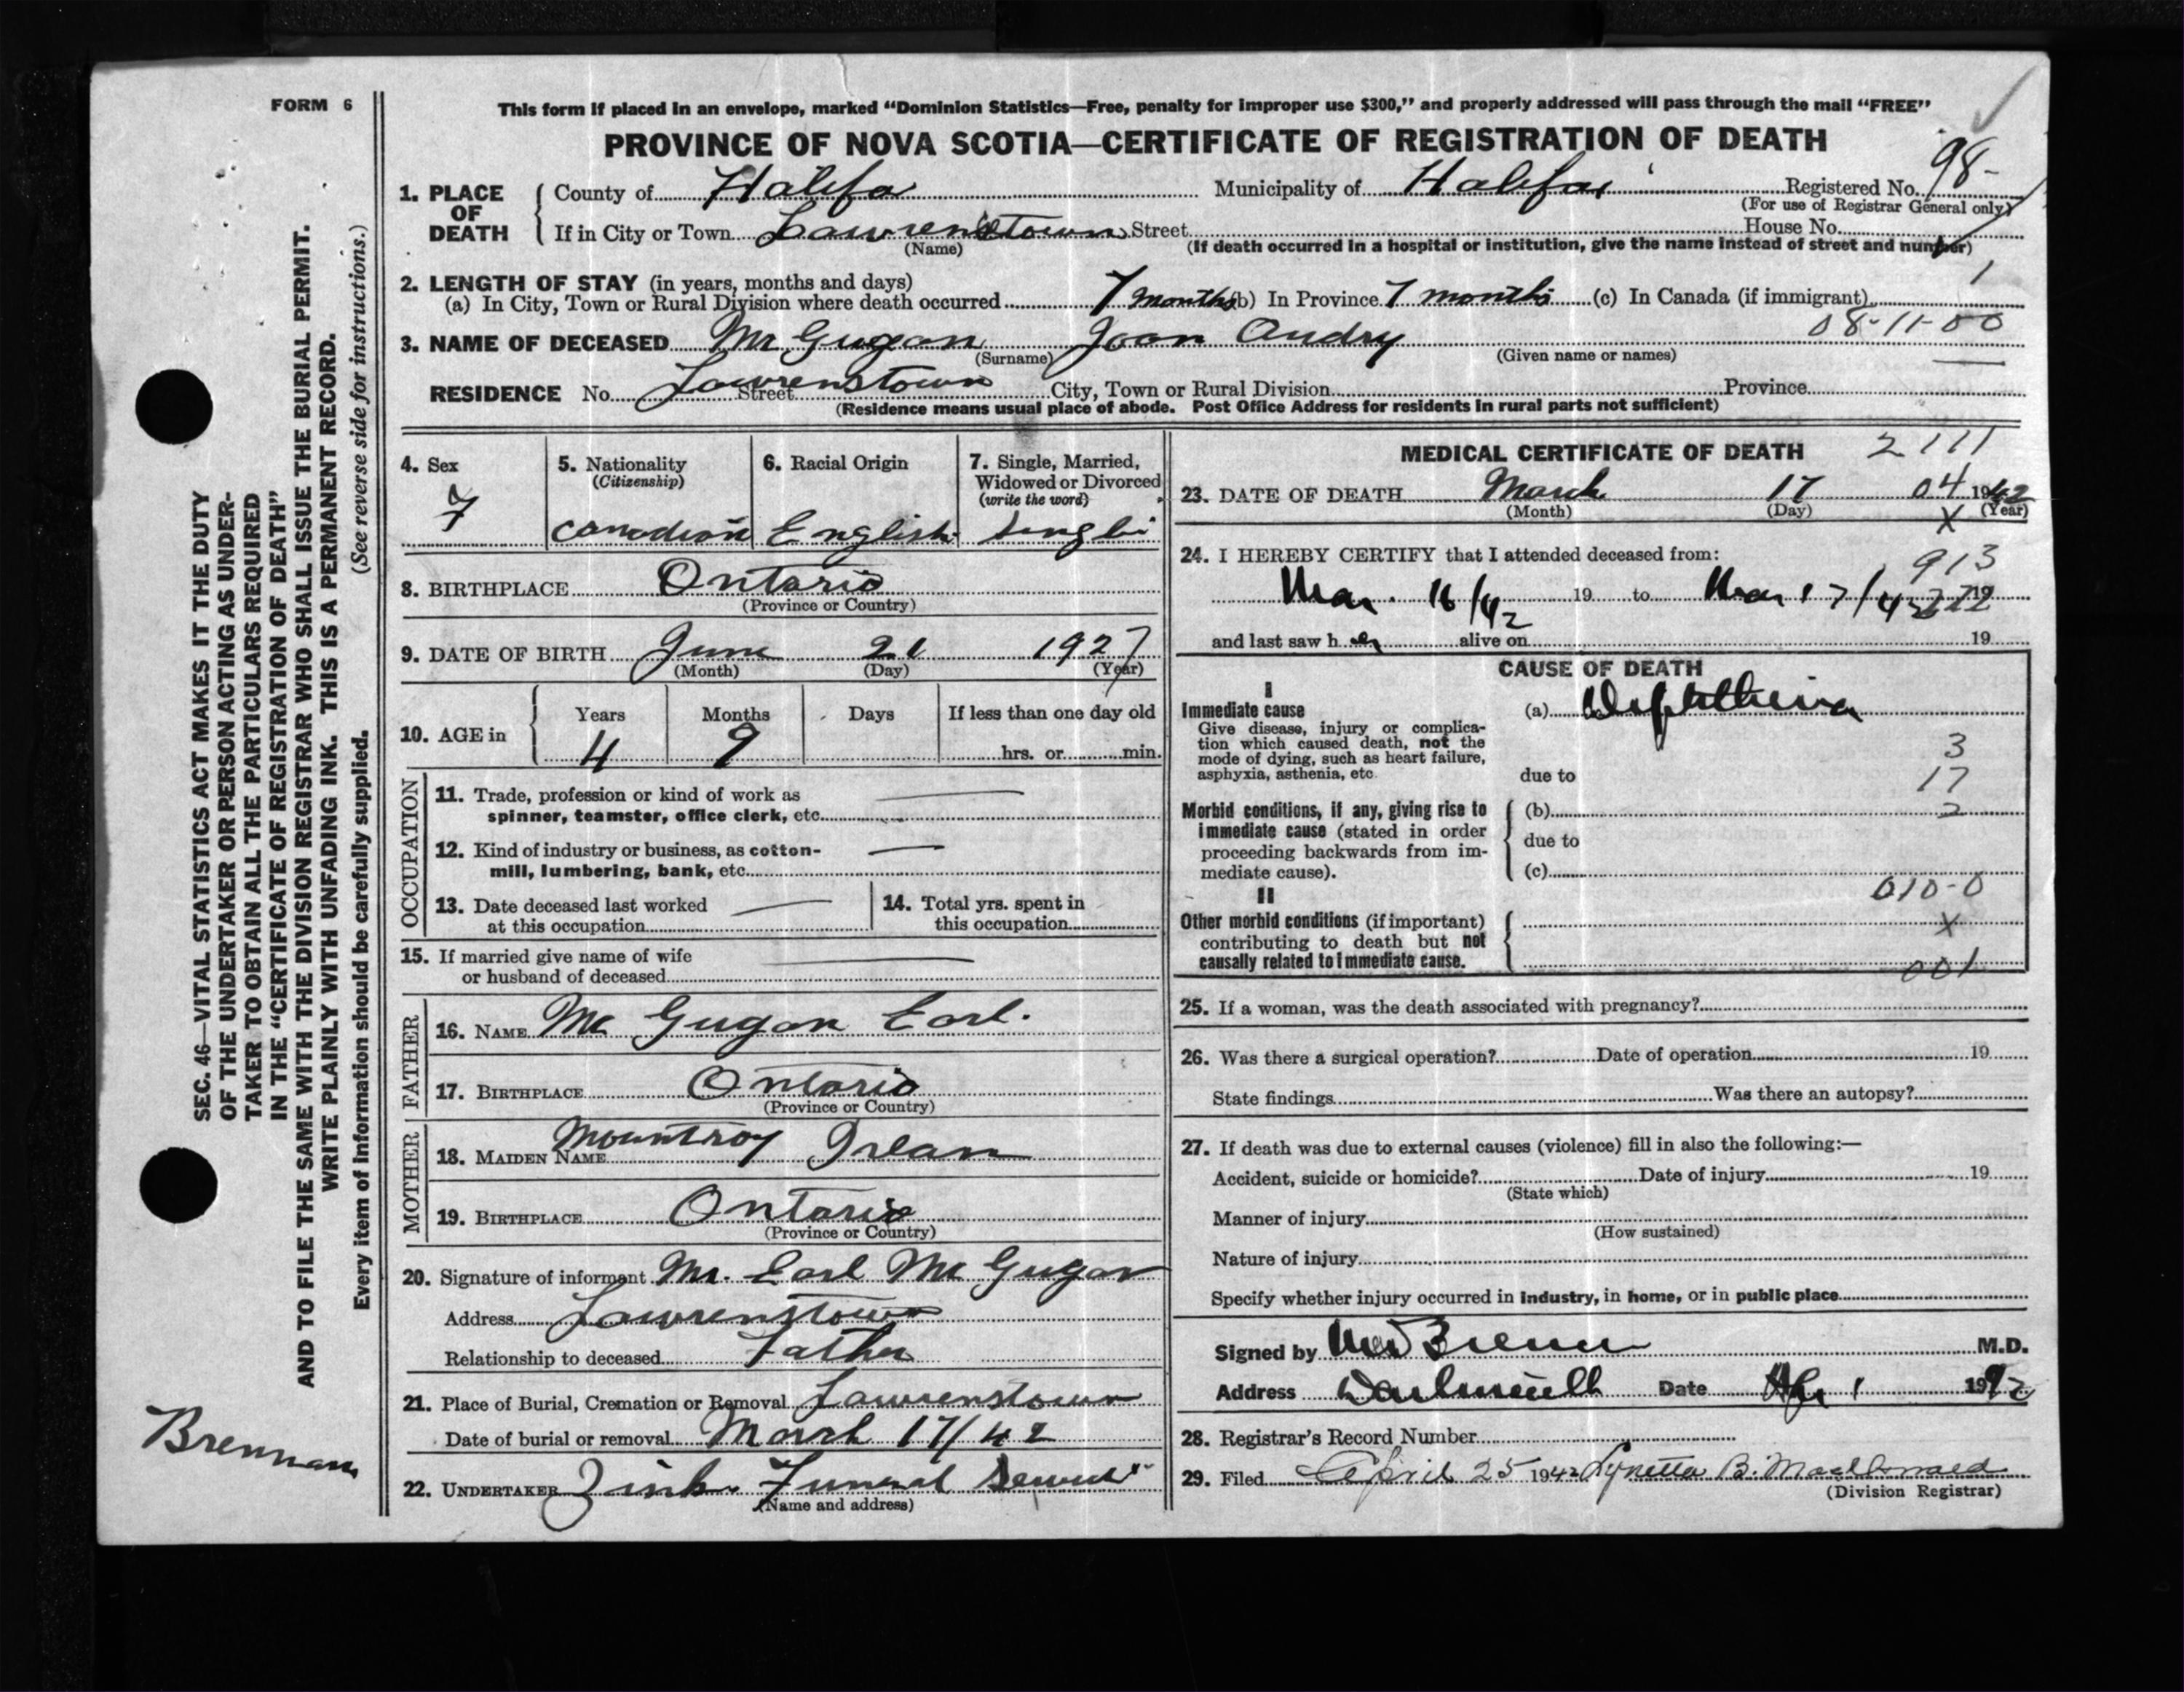 FORM 6
SEC. 46—VITAL STATISTICS ACT MAKES IT THE DUTY
OF THE UNDERTAKER OR PERSON ACTING AS UNDER-
TAKER TO OBTAIN ALL THE PARTICULARS REQUIRED
IN THE "CERTIFICATE OF REGISTRATION OF DEATH"
AND TO FILE THE SAME WITH THE DIVISION REGISTRAR WHO SHALL ISSUE THE BURIAL PERMIT.
WRITE PLAINLY WITH UNFADING INK. THIS IS A PERMANENT RECORD.
Every item of information should be carefully supplied. (See reverse side for instructions.)
Brennan
This form if placed in an envelope, marked "Dominion Statistics—Free, penalty for improper use $300," and properly addressed will pass through the mail "FREE"
PROVINCE OF NOVA SCOTIA—CERTIFICATE OF REGISTRATION OF DEATH
1. PLACE OF DEATH
County of Halifa Municipality of Halifax Registered No. 98-
(For use of Registrar General only)
If in City or Town Lawrenstown Street House No.
(Name) (If death occurred in a hospital or institution, give the name instead of street and number)
1
2. LENGTH OF STAY (in years, months and days)
(a) In City, Town or Rural Division where death occurred 7 months (b) In Province 7 months (c) In Canada (if immigrant)
08-11-00
3. NAME OF DECEASED Mc Gugan Joan Audry
(Surname) (Given name or names)
RESIDENCE No. Lawrenstown Street City, Town or Rural Division Province
(Residence means usual place of abode. Post Office Address for residents in rural parts not sufficient)
4. Sex
F
5. Nationality
(Citizenship)
Canadian
6. Racial Origin
English
7. Single, Married,
Widowed or Divorced
(write the word)
8. BIRTHPLACE Ontario
(Province or Country)
9. DATE OF BIRTH June 21 1927
(Month) (Day) (Year)
10. AGE in
Years Months Days If less than one day old
4 9 hrs. or min.
OCCUPATION
11. Trade, profession or kind of work as
spinner, teamster, office clerk, etc.
12. Kind of industry or business, as cotton-
mill, lumbering, bank, etc.
13. Date deceased last worked
at this occupation
14. Total yrs. spent in
this occupation
15. If married give name of wife
or husband of deceased
FATHER
16. NAME Mc Gugan Earl.
17. BIRTHPLACE Ontario
(Province or Country)
MOTHER
18. MAIDEN NAME Mountroy
19. BIRTHPLACE Ontario
(Province or Country)
20. Signature of informant Mr. Earl Mc Gugan
Address Lawrenstown
Relationship to deceased Father
21. Place of Burial, Cremation or Removal Lawrenstown
Date of burial or removal March 17/42
22. UNDERTAKER Zink Funeral
(Name and address)
MEDICAL CERTIFICATE OF DEATH 2111
23. DATE OF DEATH March 17 04 1942
(Month) (Day) X (Year)
24. I HEREBY CERTIFY that I attended deceased from:
913
Mar. 16/42 19 to Mar 17/42 19
and last saw h er alive on 19
CAUSE OF DEATH
I
Immediate cause
Give disease, injury or complica-
tion which caused death, not the
mode of dying, such as heart failure,
asphyxia, asthenia, etc.
(a) Diphtheria
3
due to 17
Morbid conditions, if any, giving rise to
immediate cause (stated in order
proceeding backwards from im-
mediate cause).
(b) 2
due to
(c)
010-0
II
Other morbid conditions (if important)
contributing to death but not
causally related to immediate cause.
X
001
25. If a woman, was the death associated with pregnancy?
26. Was there a surgical operation? Date of operation 19
State findings Was there an autopsy?
27. If death was due to external causes (violence) fill in also the following:—
Accident, suicide or homicide? Date of injury 19
(State which)
Manner of injury
(How sustained)
Nature of injury
Specify whether injury occurred in industry, in home, or in public place
Signed by M.D.
Address Date Apr 1 1942
28. Registrar's Record Number
29. Filed April 25 1942 Lynetta B. MacDonald
(Division Registrar)